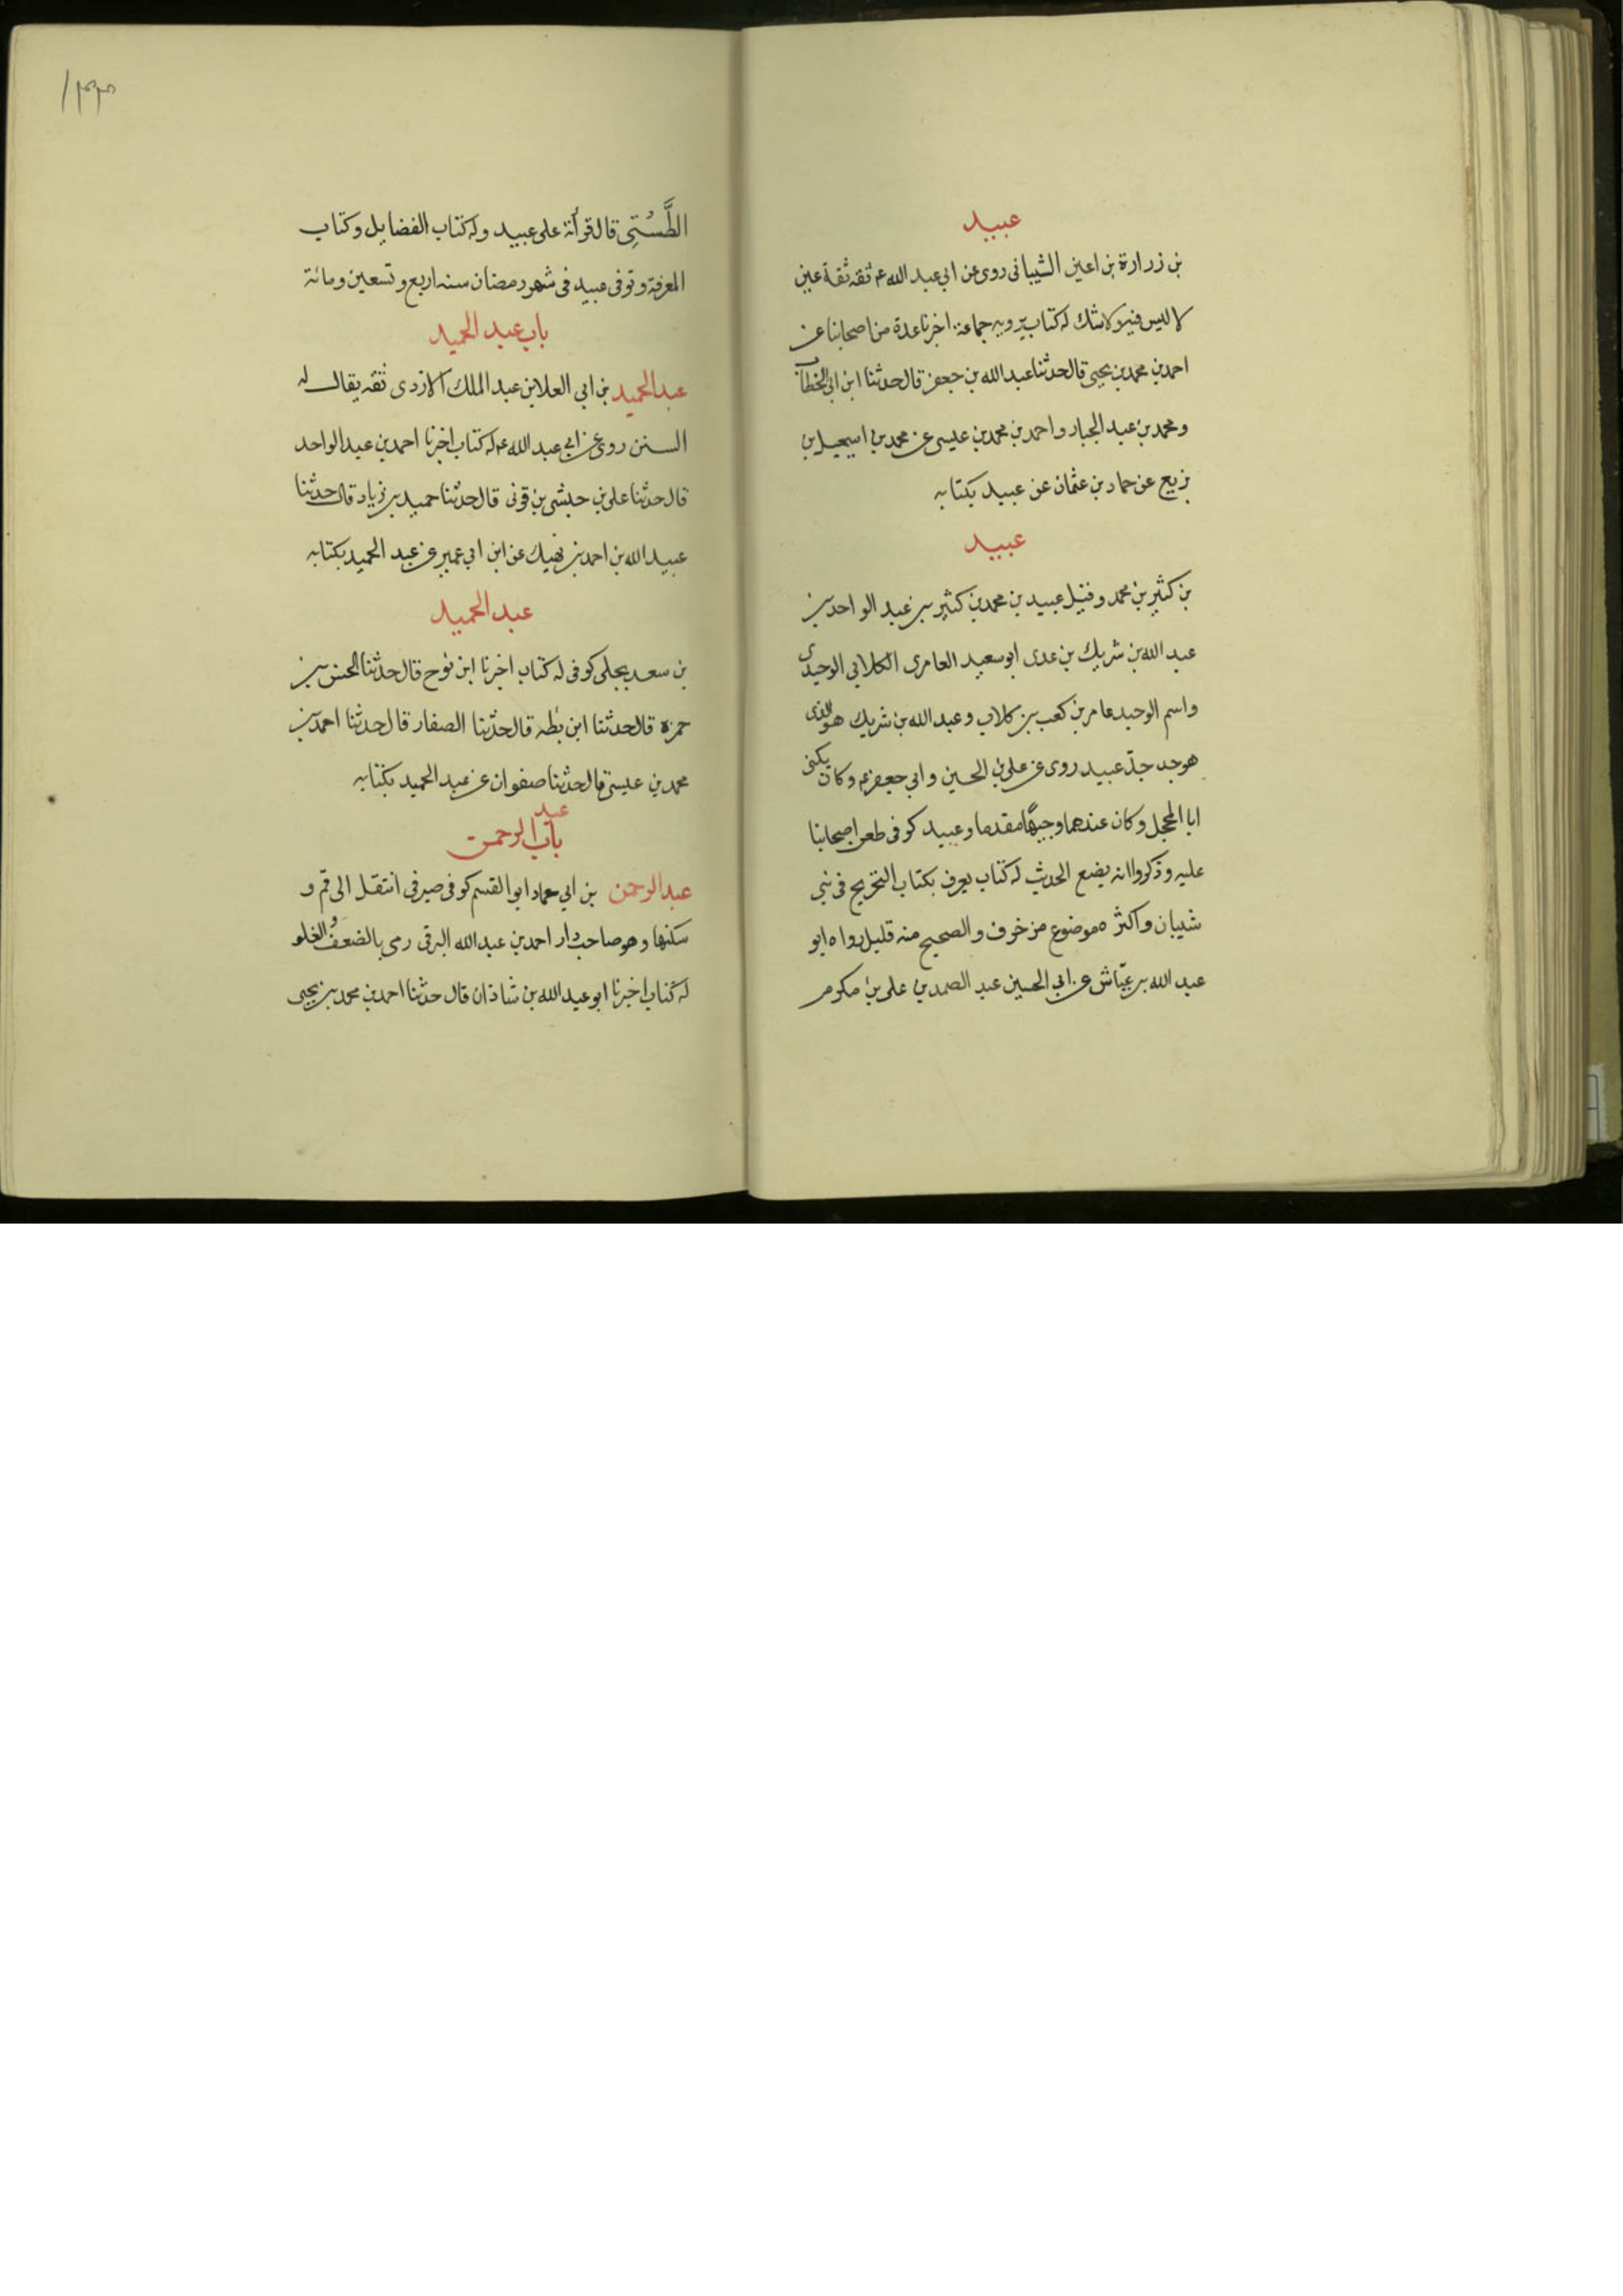 عبيد
بن زرارة بن اعين الشيبانى روى عن ابى عبد الله ع ثقه ثقة عين
لا لبس فيه ولا شك له كتاب يرويه جماعة اخبرنا عدة من اصحابنا عن
احمد بن محمد بن يحيى قال حدثنا عبد الله بن جعفر قال حدثنا ابن ابى الخطاب
ومحمد بن عبد الجبار واحمد بن محمد بن عيسى عن محمد بن اسمعيل بن
بزيع عن حماد بن عثمان عن عبيد بكتابه
عبيد
بن كثير بن محمد وقيل عبيد بن محمد بن كثير بن عبد الواحد بن
عبد الله بن شريك بن عدى ابو سعيد العامرى الكلابي الوحيدى
واسم الوحيد عامر بن كعب بن كلاب وعبد الله بن شريك هو الذى
هو جد جدّ عبيد روى عن على بن الحسين وابي جعفر ع وكان يكنى
ابا المحجل وكان عندهما وجيهًا مقدما وعبيد كوفى طعن اصحابنا
عليه وذكروا انه يضع الحديث له كتاب يعرف بكتاب التخريج فى بنى
شيبان واكثره موضوع مزخرف والصحيح منه قليل رواه ابو
عبد الله بن عيّاش عن ابي الحسين عبد الصمد بن على بن مكرم
١٣٣
الطَّسْتِى قال قرأته على عبيد وله كتاب الفضايل وكتاب
المعرفة وتوفى عبيد فى شهر رمضان سنه اربع وتسعين ومائة
باب عبد الحميد
عبد الحميد بن ابي العلا بن عبد الملك الازدى ثقه يقال له
السنن روى عن ابي عبد الله ع له كتاب اخبرنا احمد بن عبد الواحد
قال حدثنا على بن حبشى بن قونى قال حدثنا حميد بن زياد قال حدثنا
عبيد الله بن احمد بن نهيك عن ابن ابي عمير عن عبد الحميد بكتابه
عبد الحميد
بن سعد بجلى كوفى له كتاب اخبرنا ابن نوح قال حدثنا الحسن بن
حمزة قال حدثنا ابن بطه قال حدثنا الصفار قال حدثنا احمد بن
محمد بن عيسى قال حدثنا صفوان عن عبد الحميد بكتابه
باب عبد الرحمن
عبد الرحمن بن ابي حماد ابو القسم كوفى صيرفى انتقل الى قم و
سكنها وهو صاحب دار احمد بن عبد الله البرقى رمى بالضعف والغلو
له كتاب اخبرنا ابو عبد الله بن شاذان قال حدثنا احمد بن محمد بن يحيى